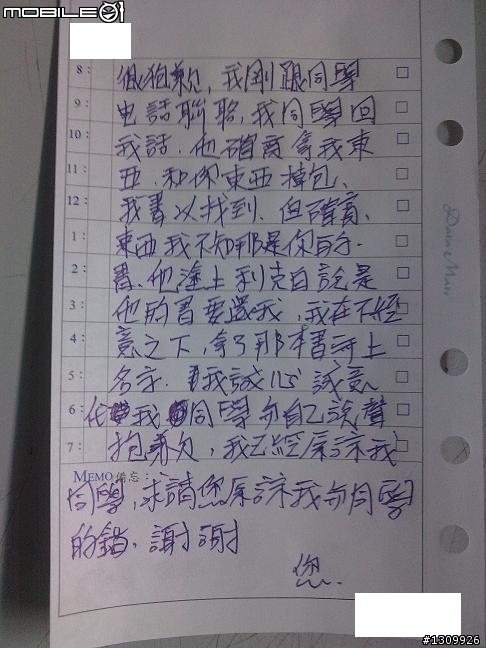 MOBILE01
8: 很抱歉，我剛跟同學
9: 电話聯絡，我同學回
10: 我話．他確實拿我東
11: 西．和你東西掉包、
12: 我書以找到．但確實、
1: 東西我不知那是你的．
2: 書．他塗上利克白說是
3: 他的書要還我，我在不經
4: 意之下，拿了那本書寫上
5: 名字．我誠心誠意
6: 代我同學与自己說聲
7: 抱歉，我已經原諒我
MEMO 備忘：
同學，求請您原諒我与同學
的錯．謝謝
您．
#1309926